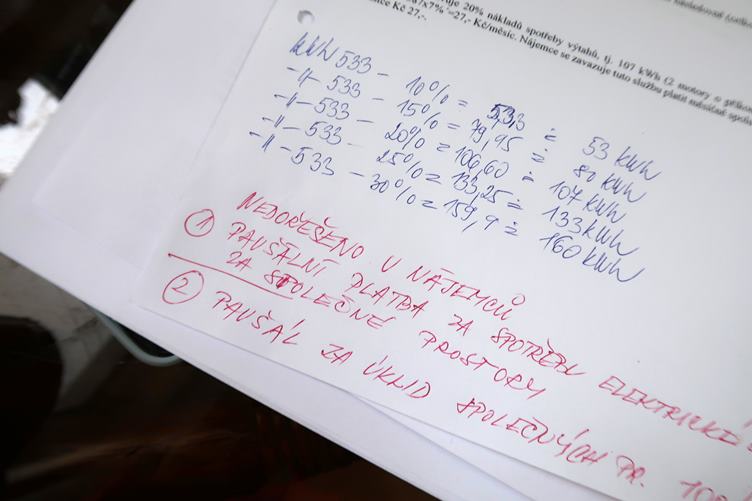 20% nákladů spotřeby výtahů, tj. 107 kWh (2 motory o
=27,- Kč/měsíc. Nájemce se zavazuje tuto službu platit měsíčně
Kč 27,-.
kWh 533 - 10% = 53,3 ≐ 53 kWh
-"- 533 - 15% = 79,95 ≐ 80 kWh
-"- 533 - 20% = 106,60 ≐ 107 kWh
-"- 533 - 25% = 133,25 ≐ 133 kWh
-"- 533 - 30% = 159,9 ≐ 160 kWh
NEDOŘEŠENO U NÁJEMCŮ
① PAUŠÁLNÍ PLATBA ZA SPOTŘEBU ELEKTRICKÉ
ZA SPOLEČNÉ PROSTORY
② PAUŠÁL ZA ÚKLID SPOLEČNÝCH PR.